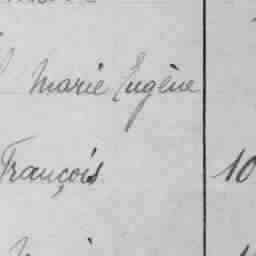 Marie Eugène
François 10